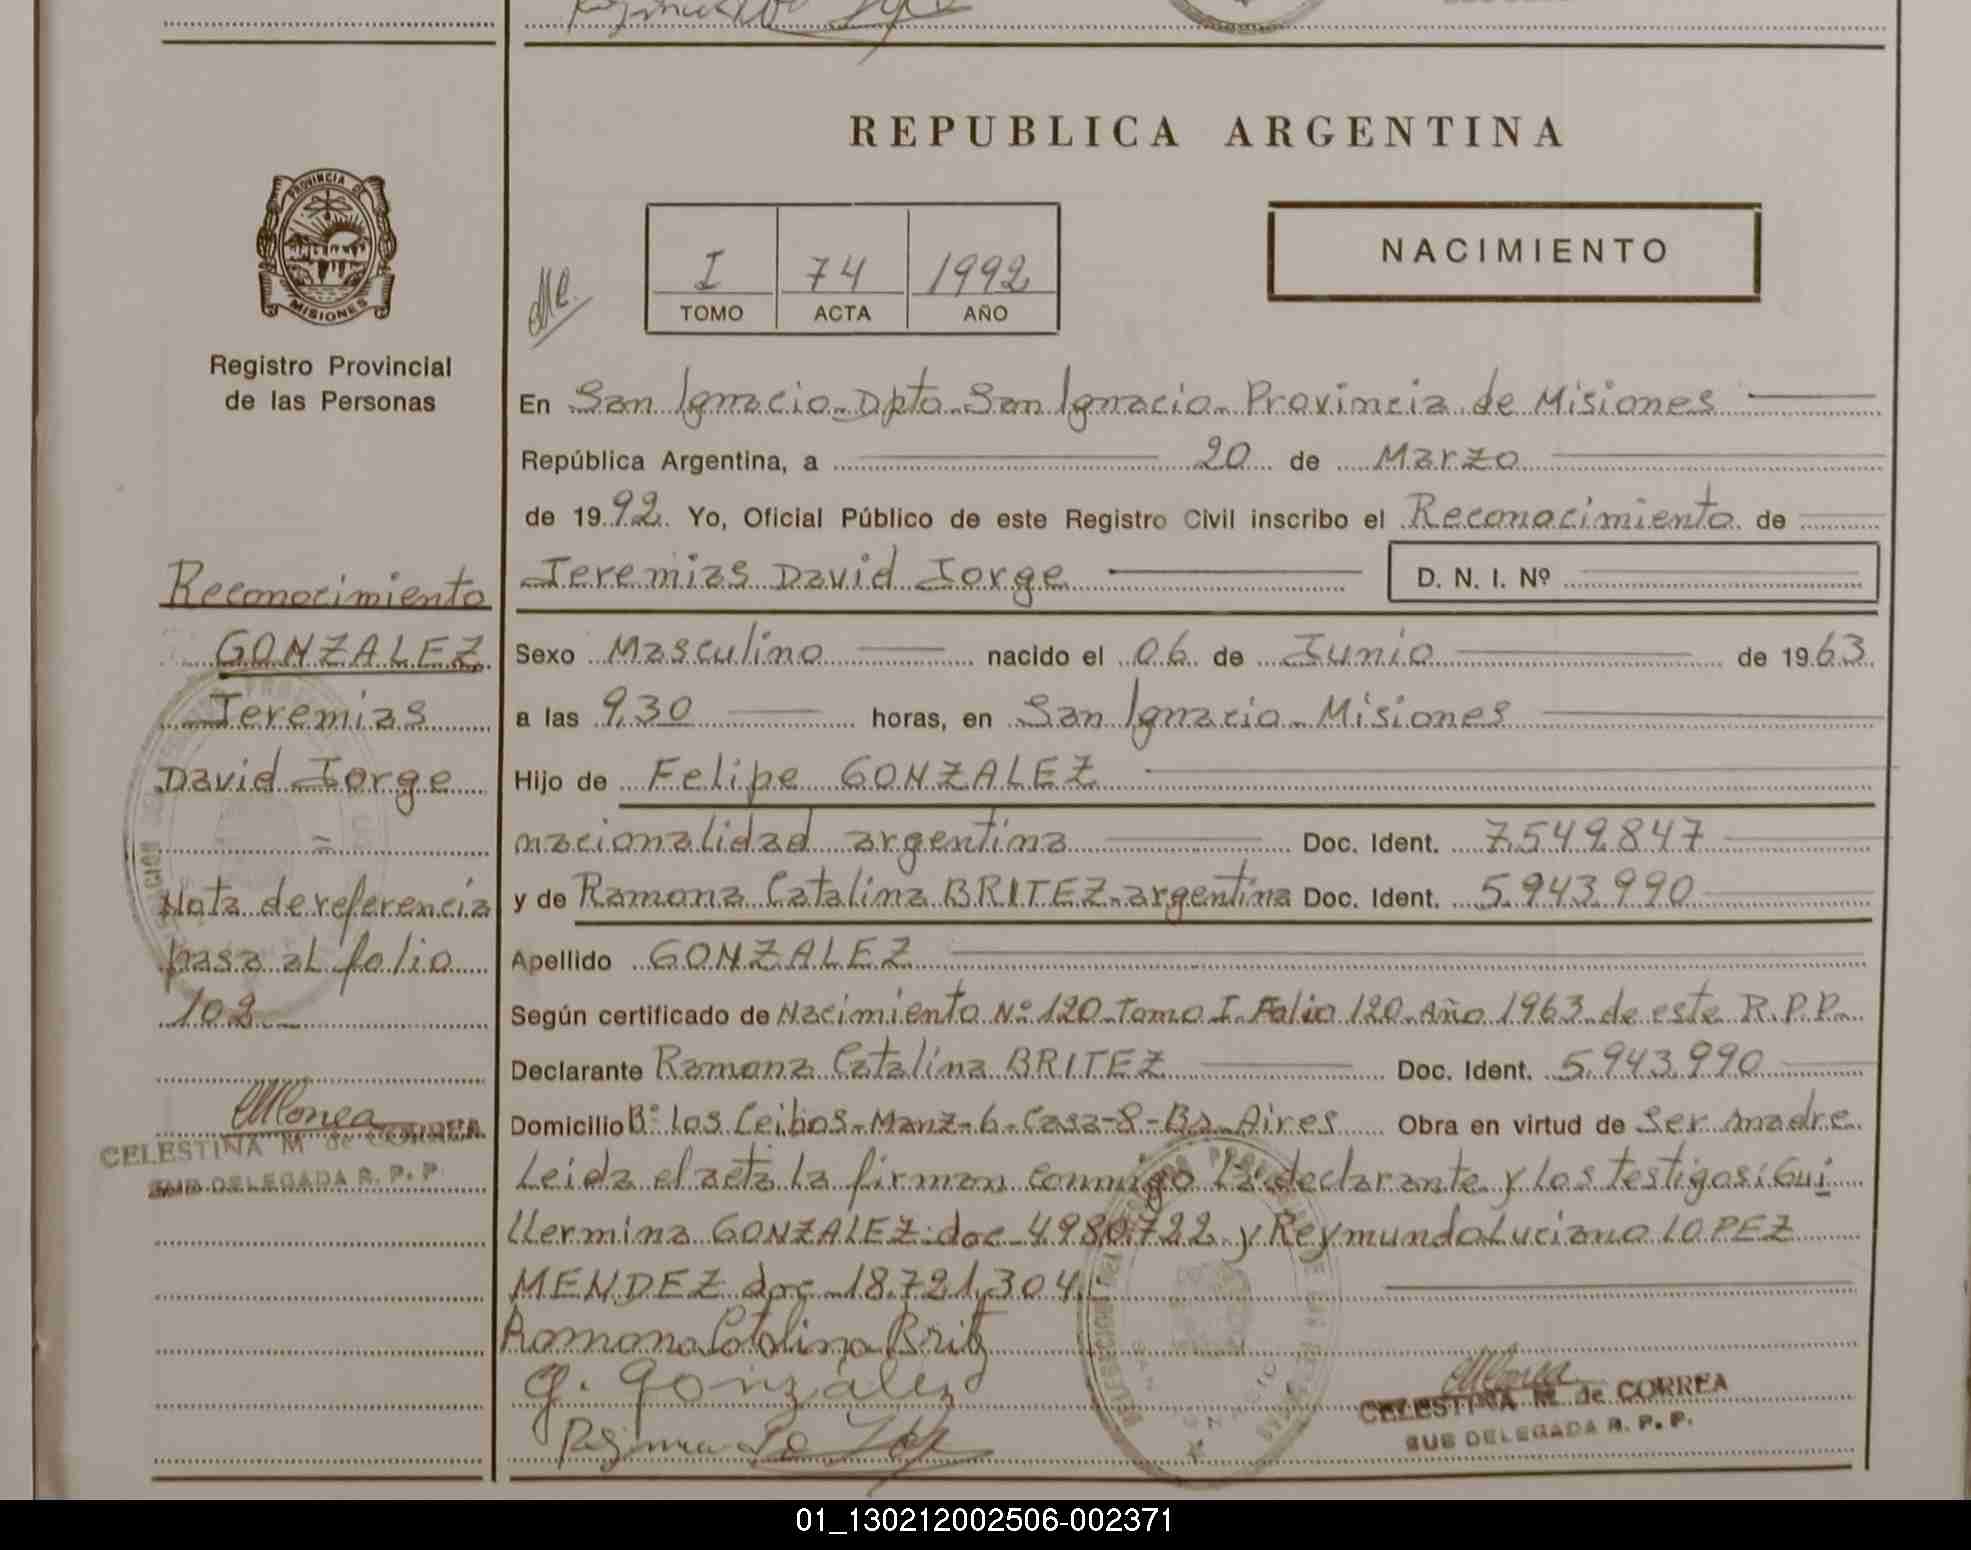 REPUBLICA ARGENTINA
PROVINCIA DE
MISIONES
Registro Provincial
de las Personas
I 74 1992
TOMO ACTA AÑO
NACIMIENTO
En San Ignacio - Dpto - San Ignacio - Provincia de Misiones
República Argentina, a 20 de Marzo
de 1992. Yo, Oficial Público de este Registro Civil inscribo el Reconocimiento de
Jeremias David Jorge D. N. I. Nº
Sexo Masculino nacido el 06 de Junio de 1963
a las 9,30 horas, en San Ignacio - Misiones
Hijo de Felipe GONZALEZ
nacionalidad argentina Doc. Ident. 7.549.847
y de Ramona Catalina BRITEZ - argentina Doc. Ident. 5.943.990
Apellido GONZALEZ
Según certificado de Nacimiento Nº 120 - Tomo I - Folio 120 - Año 1963 - de este R.P.P.
Declarante Ramona Catalina BRITEZ Doc. Ident. 5.943.990
Domicilio Bº Los Ceibos - Manz - 6 - Casa - 8 - Bs. Aires Obra en virtud de ser madre
Leida el acta la firman conmigo la declarante y los testigos: Gui
llermina GONZALEZ - doc - 4980.722 y Reymundo Luciano LOPEZ
MENDEZ doc - 18.721.304.-
Ramona Catalina Britz
G. Gonzalez
CELESTINA M. de CORREA
SUB DELEGADA R. P. P.
Reconocimiento
GONZALEZ
Jeremias
David Jorge
=
Nota de referencia
pasa al folio
102
CELESTINA M de CORREA
SUB DELEGADA R. P. P.
01_130212002506-002371